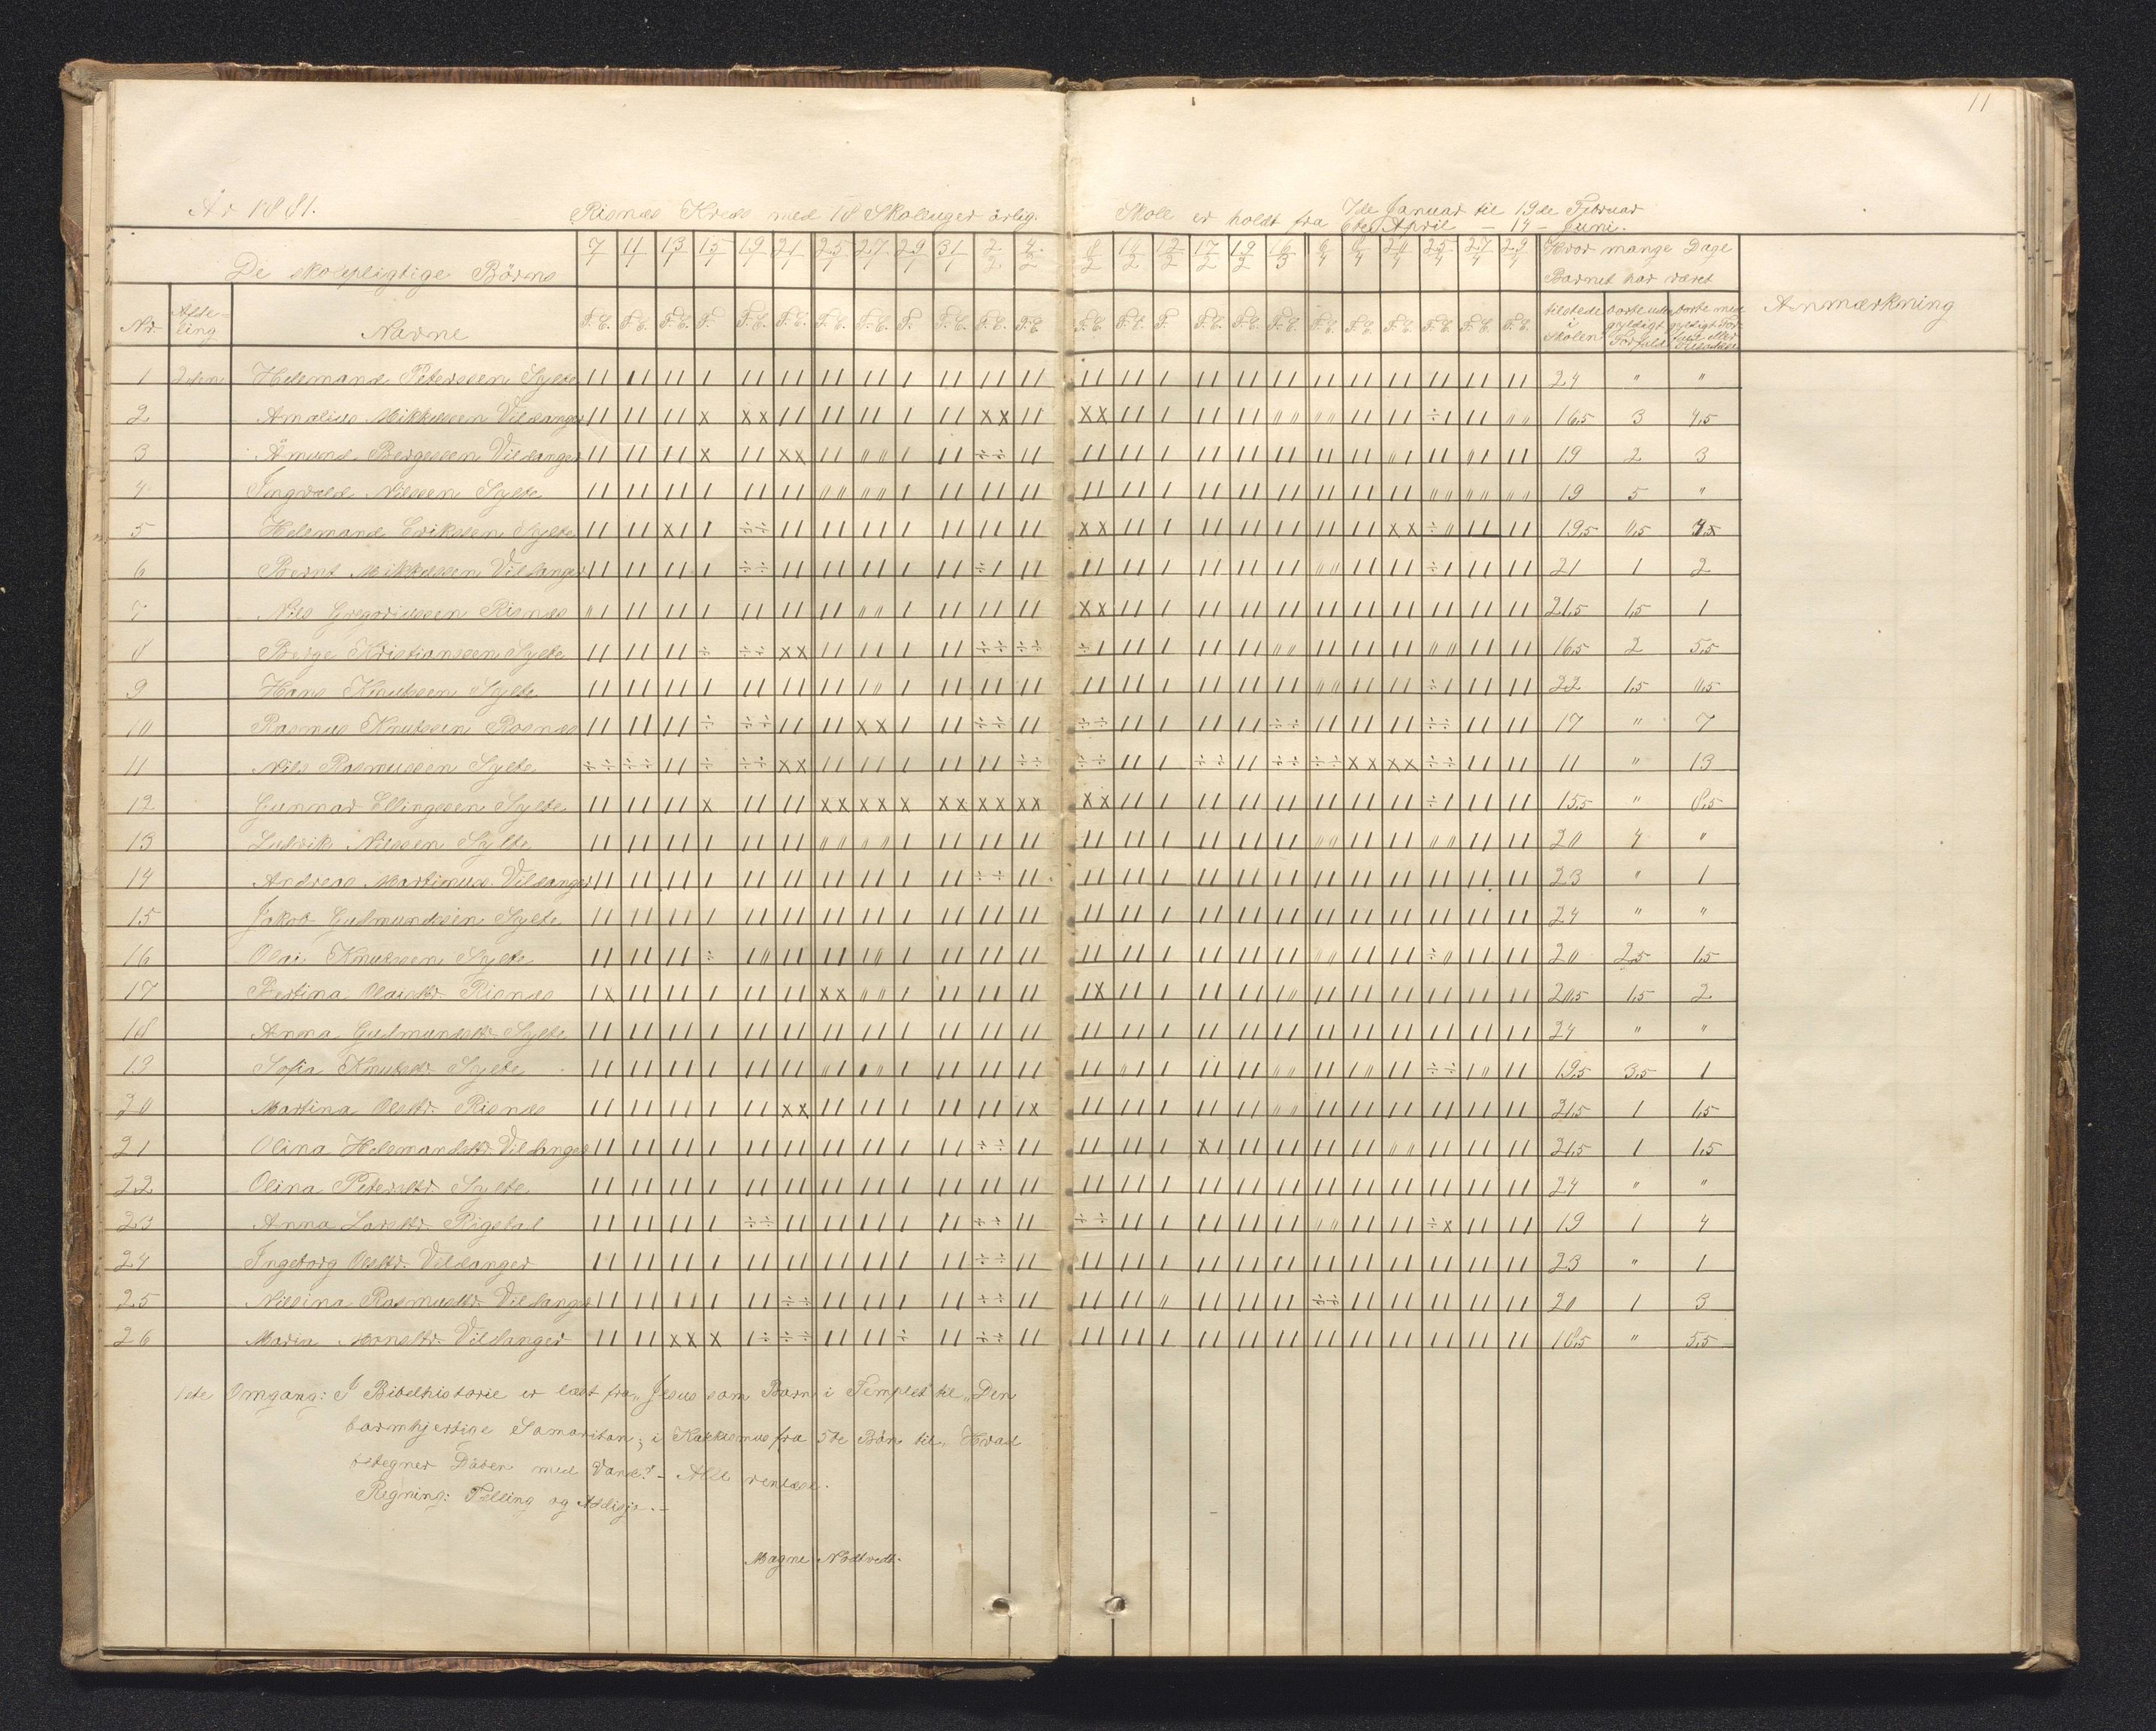 11
År 1881. Risnæs Kreds med 18 Skoleuger årlig. Skole er holdt fra 7de Januar til 19de Februar
6te April – 14 – Juni.
De skolepligtige Börns
7/1 11/1 13/1 15/1 19/1 21/1 25/1 27/1 29/1 31/1 2/2 4/2 8/2 10/2 12/2 17/2 19/2 16/3 6/4 8/4 20/4 25/4 27/4 29/4
Hvor mange Dage
Barnet har været
Nr. Afde-
ling Navne
F.E. F.E. F.E. F. F.E. F.E. F.E. F.E. F. F.E. F.E. F.E. F.E. F.E. F. F.E. F.E. F.E. F.E. F.E. F.E. F.E. F.E. F.E.
tilstede i Skolen
borte uden gyldigt Forfald
borte med gyldigt For-
Anmærkning
1 2den Helemand Peterssen Sylte 24 " "
2 Amalius Mikkelssen Vildanger 16,5 3 4,5
3 Åmund Bergessen Vildanger 19 2 3
4 Ingvald Nilssen Sylte 19 5 "
5 Helemand Erikssen Sylte 19,5 0,5 4,5
6 Bernt Mikkelssen Vildanger 21 1 2
7 Nils Gregoriussen Risnæs 21,5 1,5 1
8 Berge Kristianssen Sylte 16,5 2 5,5
9 Hans Knutssen Sylte 22 1,5 0,5
10 Rasmus Knutssen Rosnæs 17 " 7
11 Nils Rasmussen Sylte 11 " 13
12 Gunnar Ellingssen Sylte 15,5 " 8,5
13 Ludvik Nilssen Sylte 20 4 "
14 Andreas Martinuss. Vildanger 23 " 1
15 Jakob Gudmundssen Sylte 24 " "
16 Olai Knutssen Sylte 20 2,5 1,5
17 Bertina Olaisdtr. Risnæs 20,5 1,5 2
18 Anna Gudmundsdtr. Sylte 24 " "
19 Sofia Knutsdtr. Sylte 19,5 3,5 1
20 Martina Olsdtr. Risnæs 21,5 1 1,5
21 Olina Helemandsdtr. Vildanger 21,5 1 1,5
22 Olina Petersdtr. Sylte 24 " "
23 Anna Larsdtr. Rigstad 19 1 4
24 Ingeborg Olsdtr. Vildanger 23 " 1
25 Nilsina Rasmusdtr. Vildanger 20 1 3
26 Maria Monsdtr. Vildanger 18,5 " 5,5
1ste Omgang: I Bibelhistorie er læst fra „Jesus som Barn i Templet" til „Den
barmhjertige Samaritan; i Katekismus fra 5te Bön til „Hvad
betegner Dåben med Vand?" – Alle
Regning: Telling og Addisjo. –
Magne Nödtvedt.